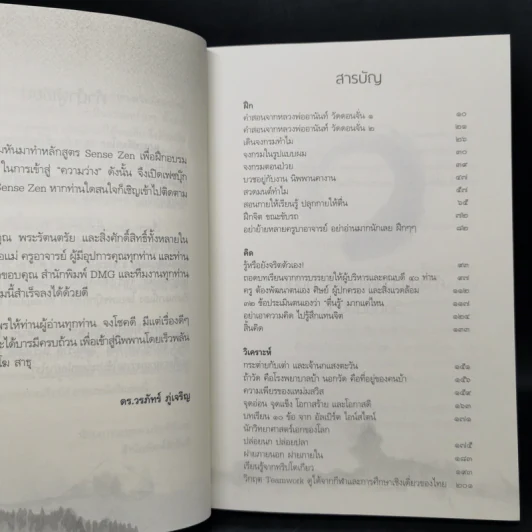 มทันมาทำหลักสูตร Sense Zen เพื่อฝึกอบรม
ในการเข้าสู่ "ความว่าง" ดังนั้น จึงเปิดเฟซบุ๊ก
Sense Zen หากท่านใดสนใจก็เชิญเข้าไปติดตาม
คุณ พระรัตนตรัย และสิ่งศักดิ์สิทธิ์ทั้งหลายใน
อแม่ ครูอาจารย์ ผู้มีอุปการคุณทุกท่าน และท่าน
ขอบคุณ สำนักพิมพ์ DMG และทีมงานทุกท่าน
มนี้สำเร็จลงได้ด้วยดี
พรให้ท่านผู้อ่านทุกท่าน จงโชคดี มีแต่เรื่องดีๆ
ะได้บารมีครบถ้วน เพื่อเข้าสู่นิพพานโดยเร็วพลัน
โม สาธุ
ดร.วรภัทร์ ภู่เจริญ
สารบัญ
ฝึก
คำสอนจากหลวงพ่ออานันท์ วัดดอนจั่น ๑ ๑๐
คำสอนจากหลวงพ่ออานันท์ วัดดอนจั่น ๒ ๒๑
เดินจงกรมทำไม ๒๖
จงกรมในรูปแบบผม ๓๐
จงกรมตอนป่วย ๓๙
บวชอยู่กับงาน นิพพานคางาน ๔๗
สวดมนต์ทำไม ๕๗
สอนกายให้เรียนรู้ ปลุกกายให้ตื่น ๖๕
ฝึกจิต ขณะขับรถ ๗๒
อย่าย้ายหลายครูบาอาจารย์ อย่าอ่านมากนักเลย ฝึกๆๆ ๘๒
คิด
รู้หรือยังจริตตัวเอง?
ถอดบทเรียนจากการบรรยายให้ผู้บริหารและคณบดี ๔๐ ท่าน
ครู ต้องพัฒนาตนเอง ศิษย์ ผู้ปกครอง และสิ่งแวดล้อม ๑๑๗
๓๒ ข้อประเมินตนเองว่า "ตื่นรู้" มากแค่ไหน ๑๒๗
อย่าเอาความคิด ไปรู้สึกแทนจิต
สิ้นคิด ๑๓๓
วิเคราะห์
กระต่ายกับเต่า และเจ้านกแสงตะวัน ๑๕๑
ถ้าวัด คือโรงพยาบาลบ้า นอกวัด คือที่อยู่ของคนบ้า
ความเพียรของแหม่มสวิส
จุดอ่อน จุดแข็ง โอกาสร้าย และโอกาสดี ๑๖๓
บทเรียน ๑๐ ข้อ จาก อัลเบิร์ต ไอน์สไตน์ ๑๗๑
นักวิทยาศาสตร์เอกของโลก
ปล่อยนก ปล่อยปลา ๑๗๕
ฝ่ายภายนอก ฝ่ายภายใน ๑๘๓
เรียนรู้จากทริปโตเกียว ๑๙๓
วิกฤต Teamwork ดูได้จากกีฬาและการศึกษาเชิงเดี่ยวของไทย ๒๐๑